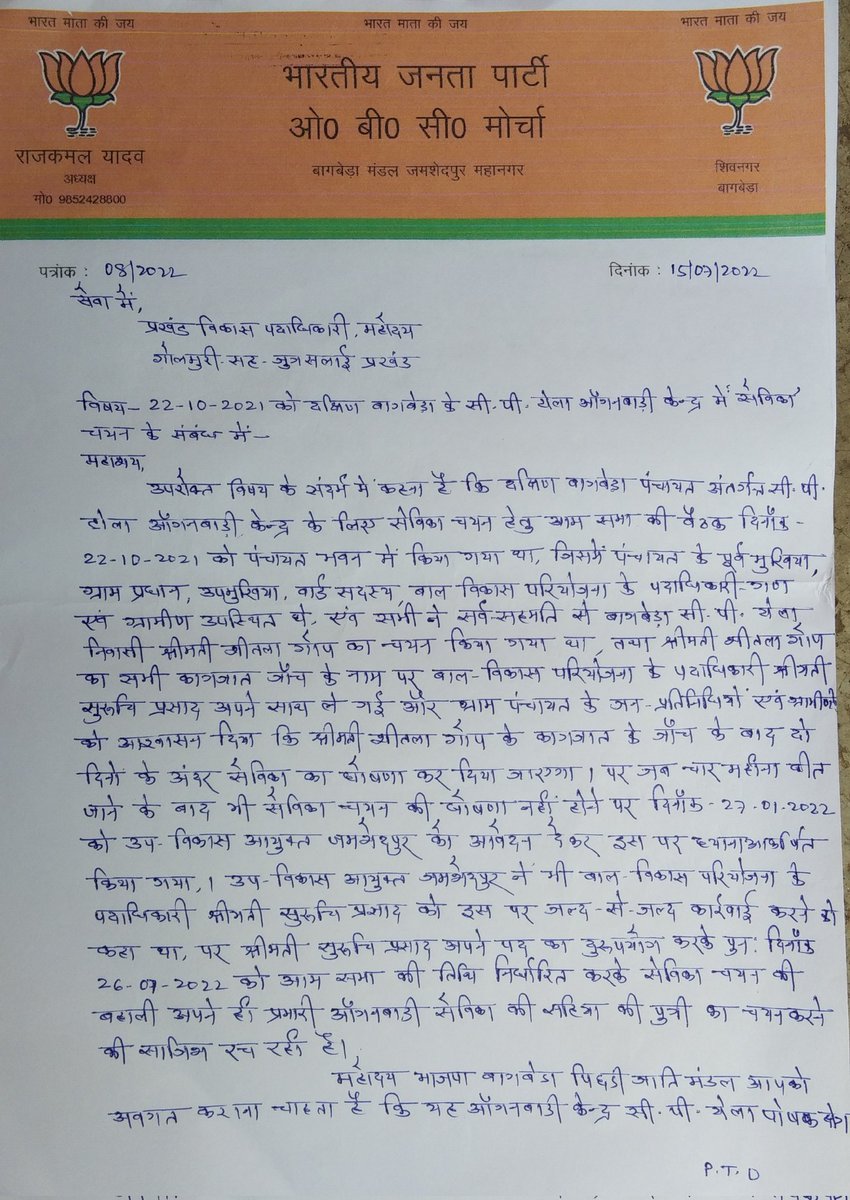 भारत माता की जय भारत माता की जय भारत माता की जय
भारतीय जनता पार्टी
ओ0 बी0 सी0 मोर्चा
बागबेड़ा मंडल जमशेदपुर महानगर
राजकमल यादव
अध्यक्ष
मो0 9852428800
शिवनगर
बागबेडा
पत्रांक : 08/2022 दिनांक : 15/07/2022
सेवा में,
प्रखंड विकास पदाधिकारी, महोदय
गोलमुरी-सह-जुगसलाई प्रखंड
विषय- 22-10-2021 को दक्षिण बागबेड़ा के सी.पी. टोला आँगनबाड़ी केन्द्र में सेविका
चयन के संबंध में-
महाशय,
उपरोक्त विषय के संदर्भ में कहना है कि दक्षिण बागबेड़ा पंचायत अंतर्गत सी.पी.
टोला आँगनबाड़ी केन्द्र के लिए सेविका चयन हेतु आम सभा की बैठक दिनाँक-
22-10-2021 को पंचायत भवन में किया गया था, जिसमें पंचायत के पूर्व मुखिया,
ग्राम प्रधान, उपमुखिया, वार्ड सदस्य, बाल विकास परियोजना के पदाधिकारी-गण
एवं ग्रामीण उपस्थित थे, एवं सभी ने सर्व-सहमति से बागबेड़ा सी.पी. टोला
निवासी श्रीमती शीतला गोप का चयन किया गया था, तथा श्रीमती शीतला गोप
का सभी कागजात जाँच के नाम पर बाल-विकास परियोजना के पदाधिकारी श्रीमती
सुरूचि प्रसाद अपने साथ ले गई और ग्राम पंचायत के जन-प्रतिनिधियों एवं ग्रामीणों
को आश्वासन दिया कि श्रीमती शीतला गोप के कागजात के जाँच के बाद दो
दिनों के अंदर सेविका का घोषणा कर दिया जाएगा। पर जब चार महीना बीत
जाने के बाद भी सेविका चयन की घोषणा नहीं होने पर दिनाँक-27-01-2022
को उप-विकास आयुक्त जमशेदपुर को आवेदन देकर इस पर ध्यानाआकर्षित
किया गया,। उप-विकास आयुक्त जमशेदपुर ने भी बाल-विकास परियोजना के
पदाधिकारी श्रीमती सुरूचि प्रसाद को इस पर जल्द-से-जल्द कार्रवाई करने को
कहा था, पर श्रीमती सुरूचि प्रसाद अपने पद का दुरूपयोग करके पुन: दिनाँक
26-07-2022 को आम सभा की तिथि निर्धारित करके सेविका चयन की
बहाली अपने ही प्रभारी आँगनबाडी सेविका की सहिया की पुत्री का चयन करने
की साजिश रच रही है।
महोदय भाजपा बागबेडा पिछडी जाति मंडल आपको
अवगत कराना चाहता है कि यह आँगनबाडी केन्द्र सी.पी. टोला पोषक क्षेत्र
P.T.O